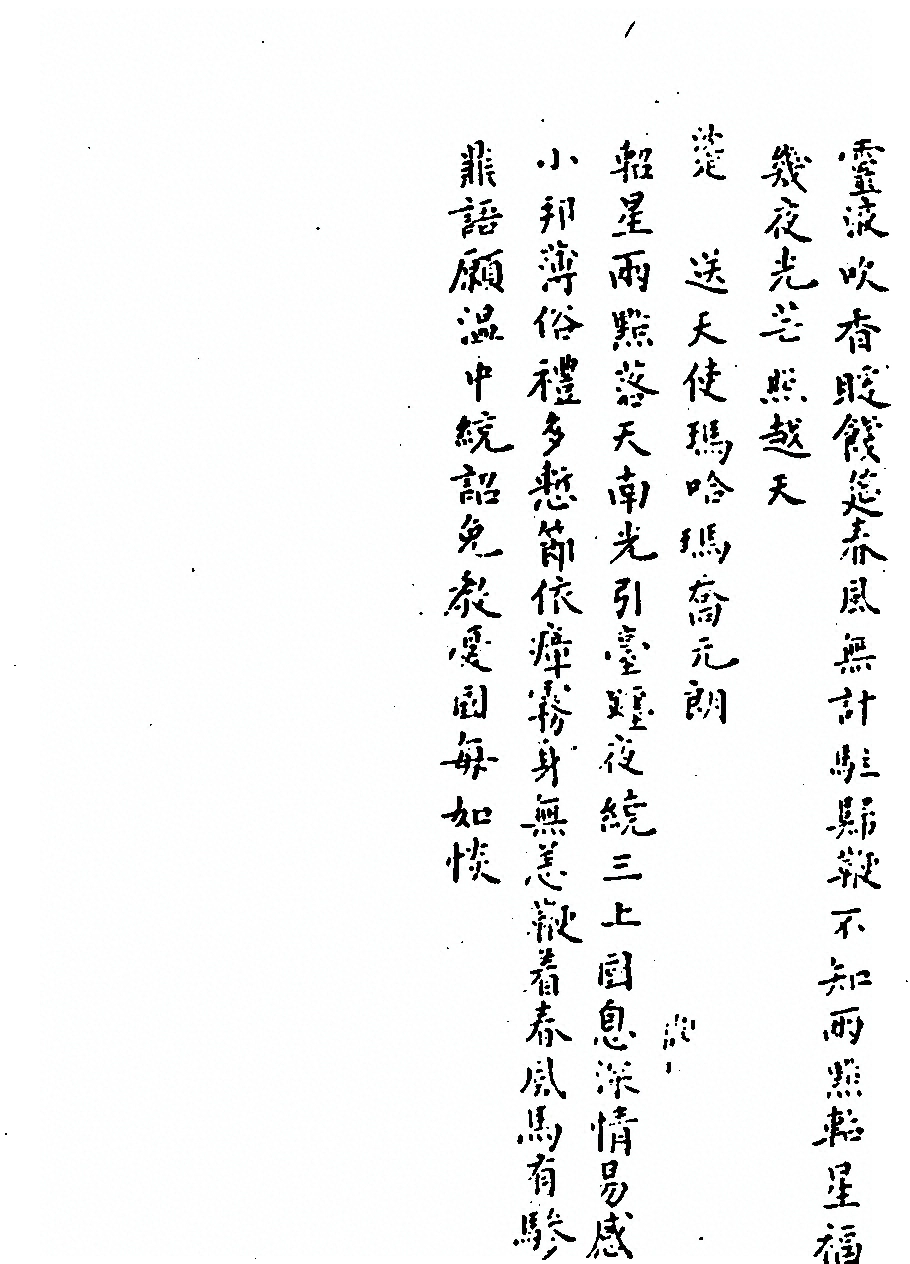 靈液吹香暖餞筵春風無計駐歸鞭不知兩點軺星福
幾夜光芒照越天
送天使瑪哈瑪喬元朗
軺星兩點落天南光引臺躔夜繞三上國恩深情易感
小邦薄俗禮多慙節依瘴霧身無恙鞭着春風馬有驂
鼎語願温中統詔免教憂國每如惔